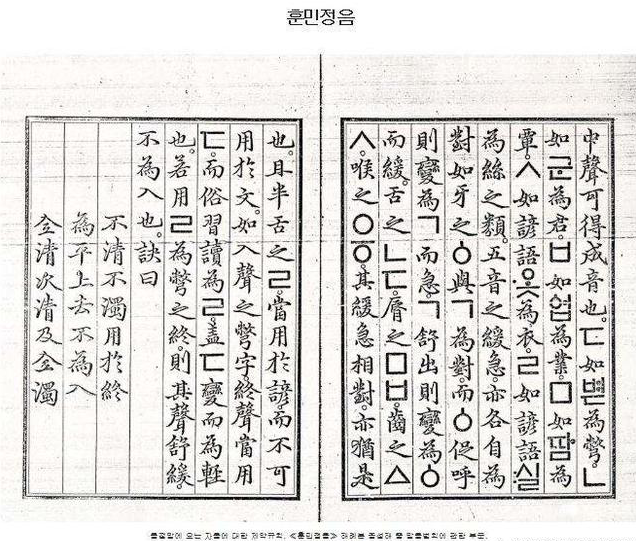 훈민정음
中聲可得成音也。ㄷ如볃為彆。ㄴ
如군為君。ㅂ如업為業。ㅁ如땀為
覃。ㅅ如諺語옷為衣。ㄹ如諺語:실
為絲之類。五音之緩急。亦各自為
對如牙之ㆁ與ㄱ為對。而ㆁ促呼
則變為ㄱ而急。ㄱ舒出則變為ㆁ
而緩。舌之ㄴㄷ。脣之ㅁㅂ。齒之ㅿ
ㅅ。喉之ㅇㆆ。其緩急相對。亦猶是
也。且半舌之ㄹ。當用於諺。而不可
用於文。如入聲之彆字。終聲當用
ㄷ。而俗習讀為ㄹ。盖ㄷ變而為輕
也。若用ㄹ為彆之終。則其聲舒緩。
不為入也。訣曰
不清不濁用於終
為平上去不為入
全清次清及全濁